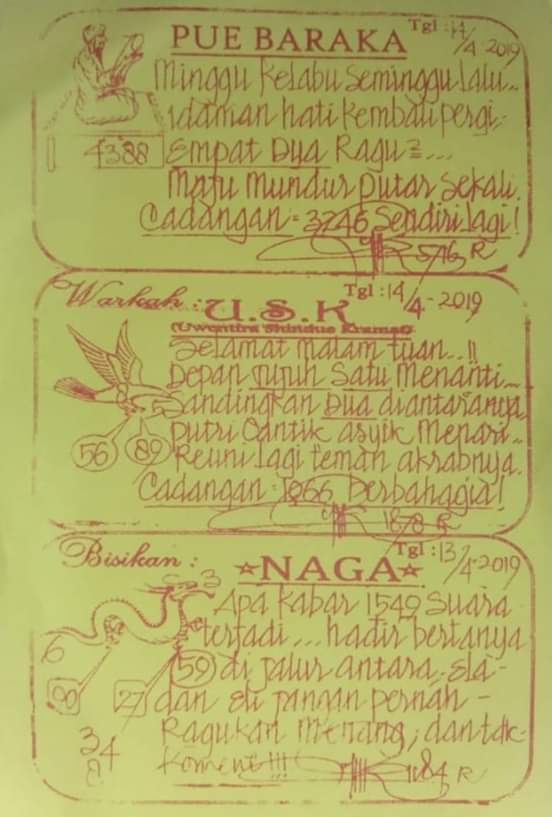 PUE BARAKA Tgl : 14/4-2019
Minggu Kelabu Seminggu Lalu..
idaman hati Kembali pergi,
4388 Empat Dua Ragu²...
Maju Mundur Putar Sekali.
Cadangan = 3246 Sendiri lagi!
R
Warkah : U.S.K Tgl : 14/4-2019
(Uwentira Shindue Kramat)
Selamat malam tuan..!!
Depan Tujuh Satu Menanti..
Sandingkan Dua diantaranya
Putri Cantik asyik Menari..
56 89 Reuni Lagi teman akrabnya.
Cadangan : 1866 Berbahagia!
1878 R
Bisikan : NAGA Tgl : 13/4-2019
Apa Kabar 1549 Suara
terjadi... hadir bertanya
59 di Jalur antara
90 27 dan jangan pernah -
Ragukan Menang, dan tak
34
8
Koment!!!
R